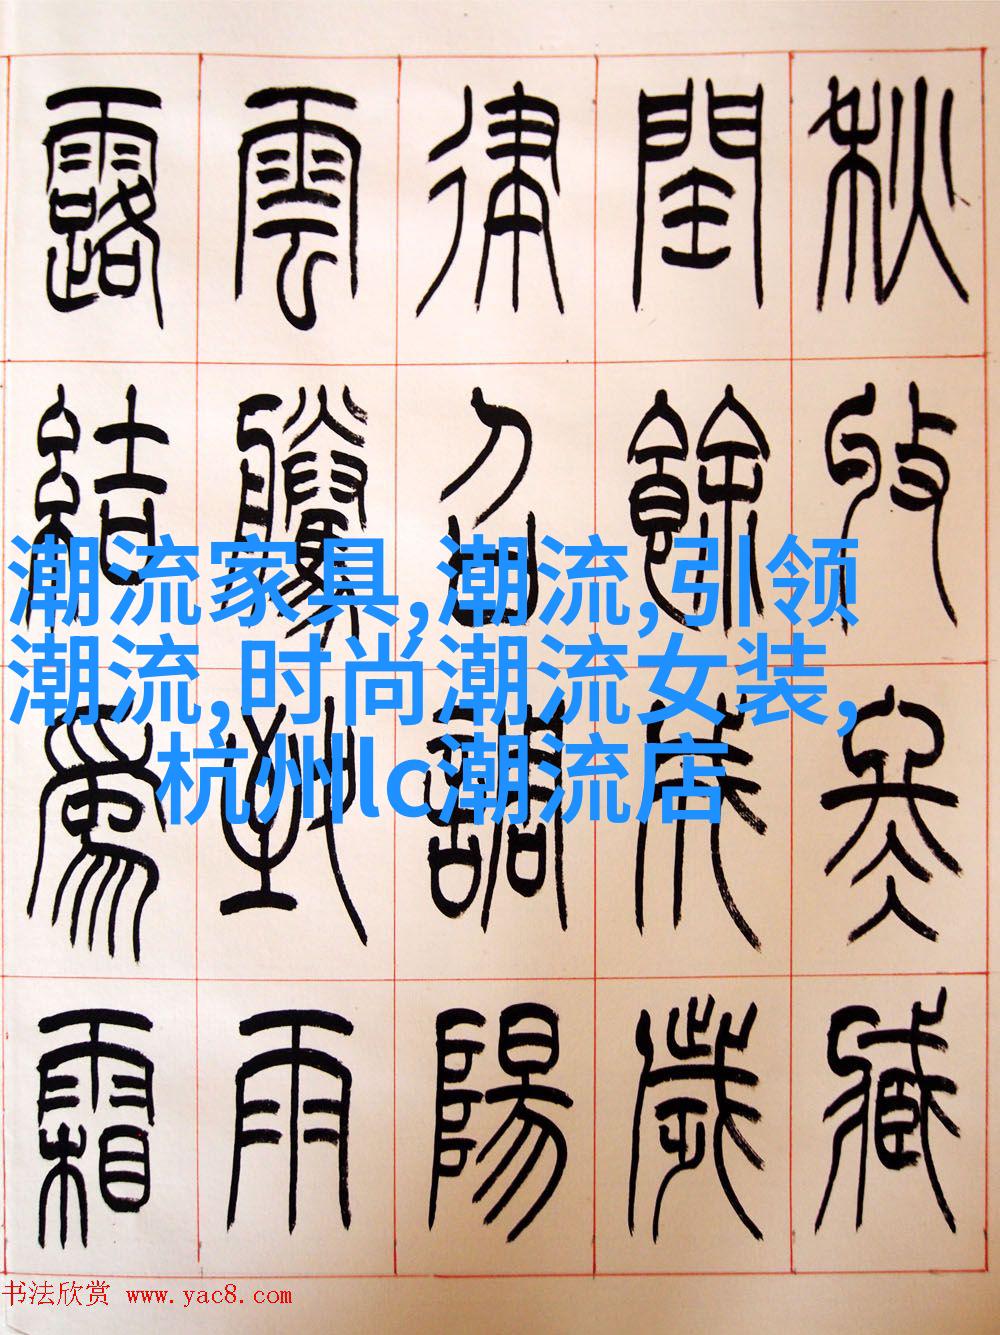 秋收冬臧
閏餘成歲
律召調陽
雲騰致雨
露結爲霜
潮流家具,潮流,引领
潮流,时尚潮流女装,
杭州lc潮流店
书法欣赏 www.yac8.com